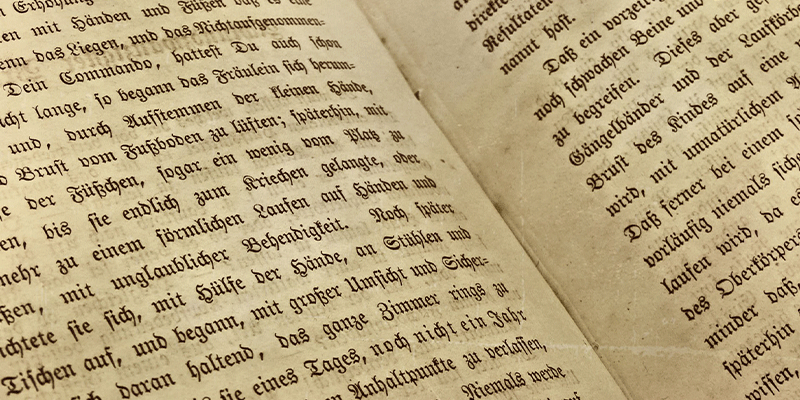 Erhöhung
en mit Händen und Füßen daß es eine
enn das Liegen, und das Nichtaufgenommen-
Dein Commando, hattest Du auch schon
icht lange, so begann das Fräulein sich herum-
und, durch Aufstemmen der kleinen Hände,
Brust vom Fußboden zu lüften; späterhin, mit
e der Füßchen, sogar ein wenig vom Platz zu
en, bis sie endlich zum Kriechen gelangte, oder
mehr zu einem förmlichen Laufen auf Händen und
ßen, mit unglaublicher Behendigkeit. Noch später
ichtete sie sich, mit Hülfe der Hände, an Stühlen und
Tischen auf, und begann, mit großer Umsicht und Sicher-
sich daran haltend, das ganze Zimmer rings zu
sie eines Tages, noch nicht ein Jahr
Anhaltpunkte zu verlassen,
Niemals werde
direkte
Resultaten
nannt hast.
Daß ein vorzeit
noch schwachen Beine und
zu begreifen. Dieses aber ge
Gängelbänder und der Laufkörbe
Brust des Kindes auf eine
wird, mit unnatürlichem
Daß ferner bei einem
vorläufig niemals sich
laufen wird, da es
des Oberkörpers
minder daß
späterhin
wissen,